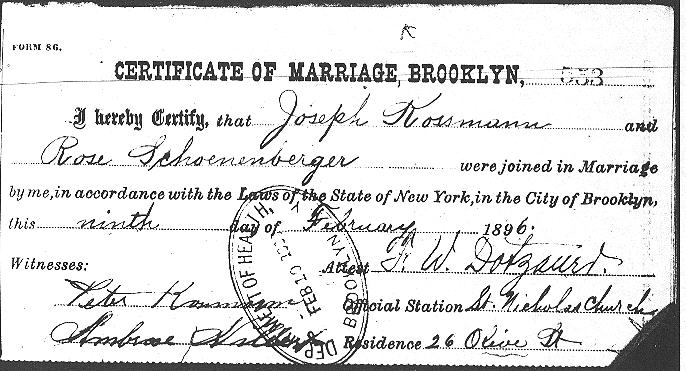 FORM 86.
CERTIFICATE OF MARRIAGE, BROOKLYN, 553
I hereby Certify, that Joseph Kossmann and
Rose Schoenenberger were joined in Marriage
by me, in accordance with the Laws of the State of New York, in the City of Brooklyn,
this ninth day of February 1896.
Witnesses: Attest F. W. Dotzauer.
Peter Official Station St. Nicholas Church
Ambrose Residence 26 Olive St
DEPARTMENT OF HEALTH,
FEB 10
BROOKLYN